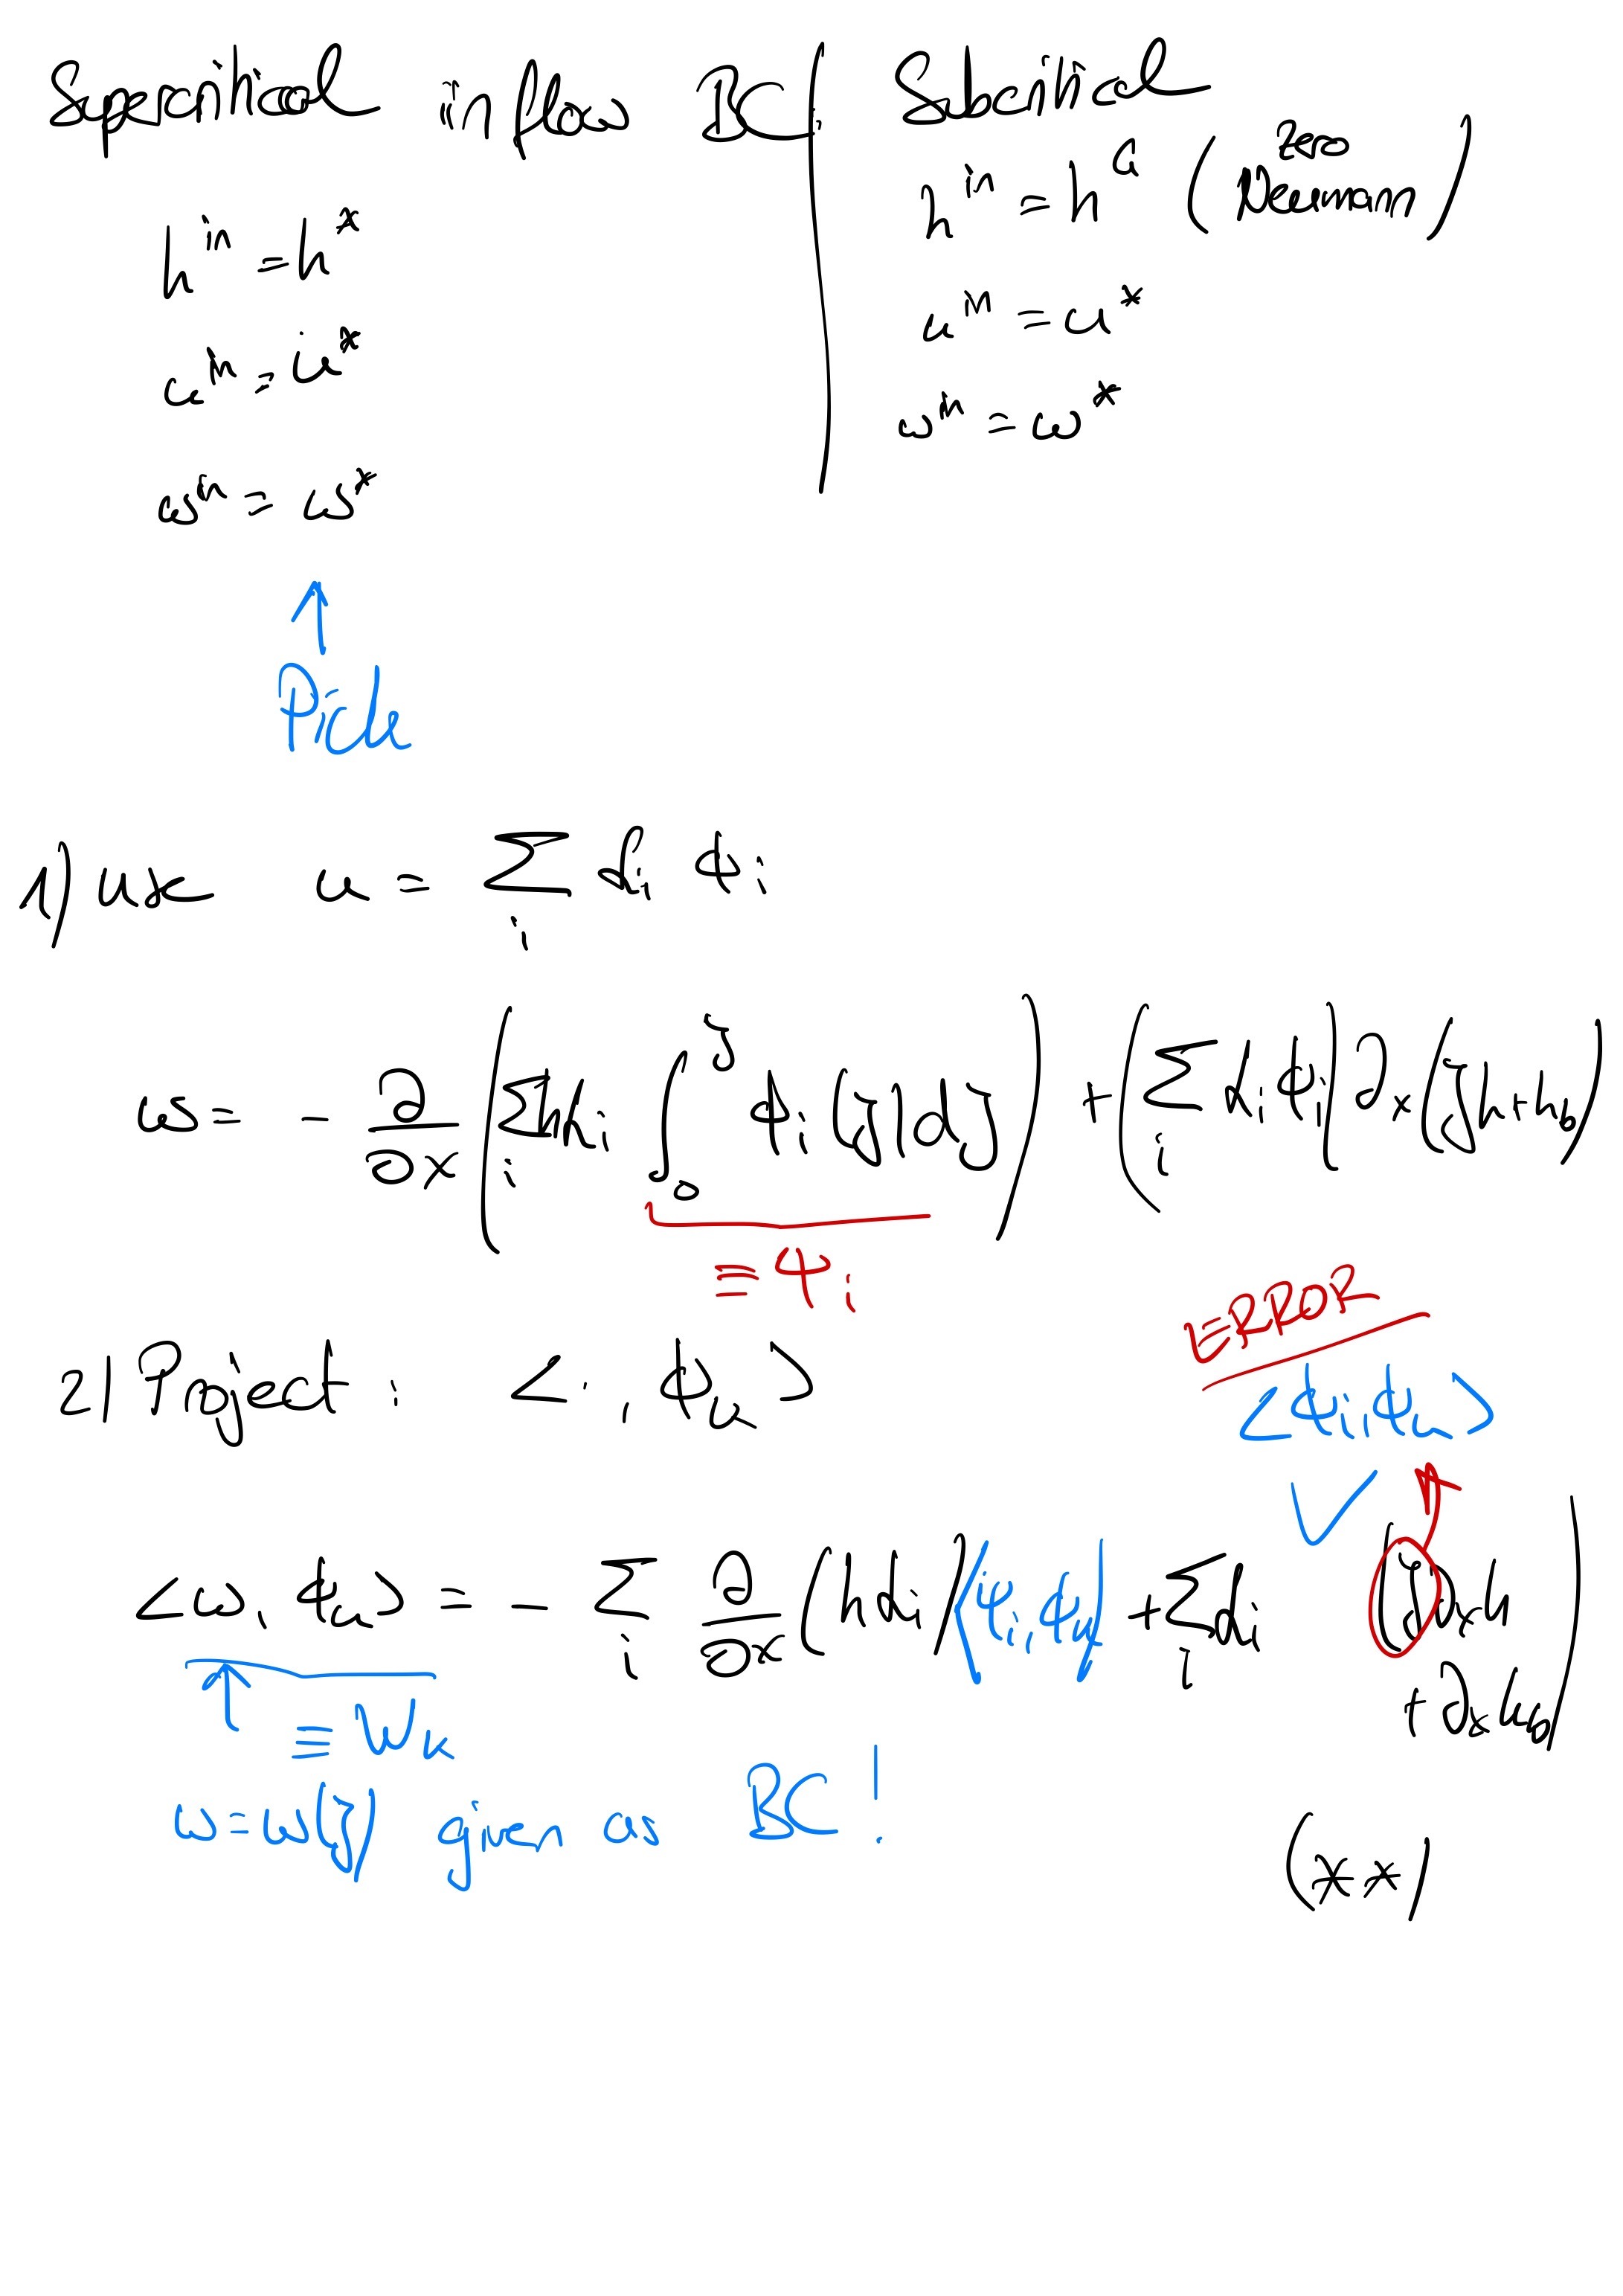 Supercritical inflow BC:
h^in = h^*
u^in = u^*
ω^in = ω^*
Pick
Subcritical
h^in = h^a (zero Neumann)
u^in = u^*
ω^in = ω^*
1) use u = ∑_i α_i ϕ_i
ω = - ∂/∂x (∑_i h α_i ∫_0^ζ ϕ_i(ζ) dζ) + (∑_i α_i ϕ_i) ∂_x (ζh + h_b)
≡ ψ_i
2) Project: < · , ϕ_k >
ERROR
<ϕ_i, ϕ_k>
✓
<ω, ϕ_k> = - ∑_i ∂/∂x (h α_i) <ψ_i, ϕ_k> + ∑_i α_i (ζ ∂_x h + ∂_x h_b)
≡ W_k
ω = ω(ζ) given as BC!
(**)